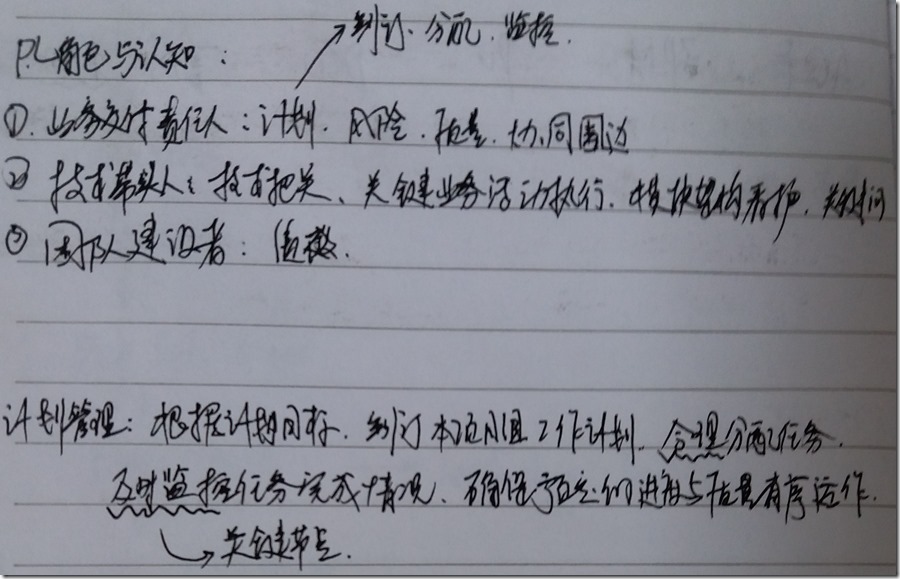 制订、分配、监控.
PL角色与认知：
①. 业务交付责任人：计划、风险、质量、协同周边
② 技术带头人：技术把关、关键业务活动执行、模块架构看护、关键
③ 团队建设者：
计划管理：根据计划目标、制订本项目组工作计划、合理分配任务、
及时监控任务完成情况、确保项目的进度与质量有序运作.
关键节点.